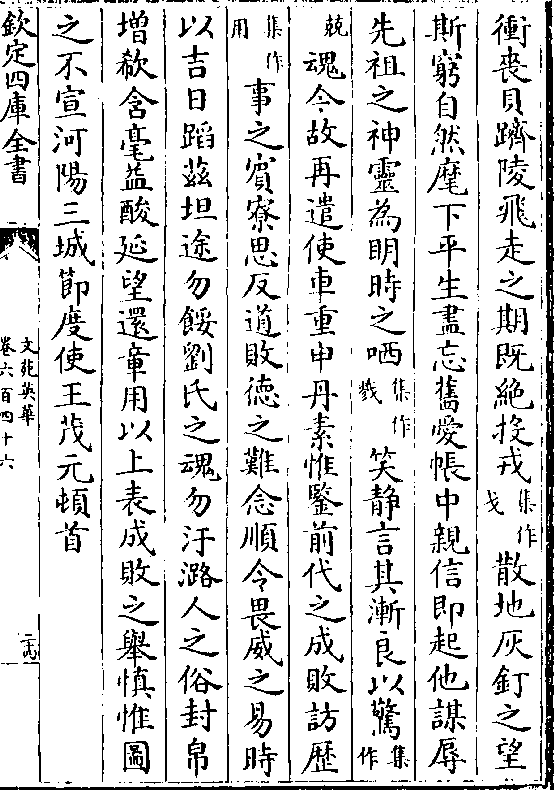 衝喪貝躋陵飛走之期既絶投戎集作戈散地灰釘之望
斯窮自然麾下平生盡忘舊愛帳中親信即起他謀辱
先祖之神靈為明時之哂集作戮笑静言其漸良以驚集作
兢魂今故再遣使車重申丹素惟鑒前代之成敗訪歴
集作用事之賓寮思反道敗徳之難念順令畏威之易時
以吉日蹈兹坦途勿餒劉氏之魂勿汙潞人之俗封帛
增欷含毫益酸延望還章用以上表成敗之舉慎惟圖
之不宣河陽三城節度使王茂元頓首
欽定四庫全書
文苑英華
卷六百四十六